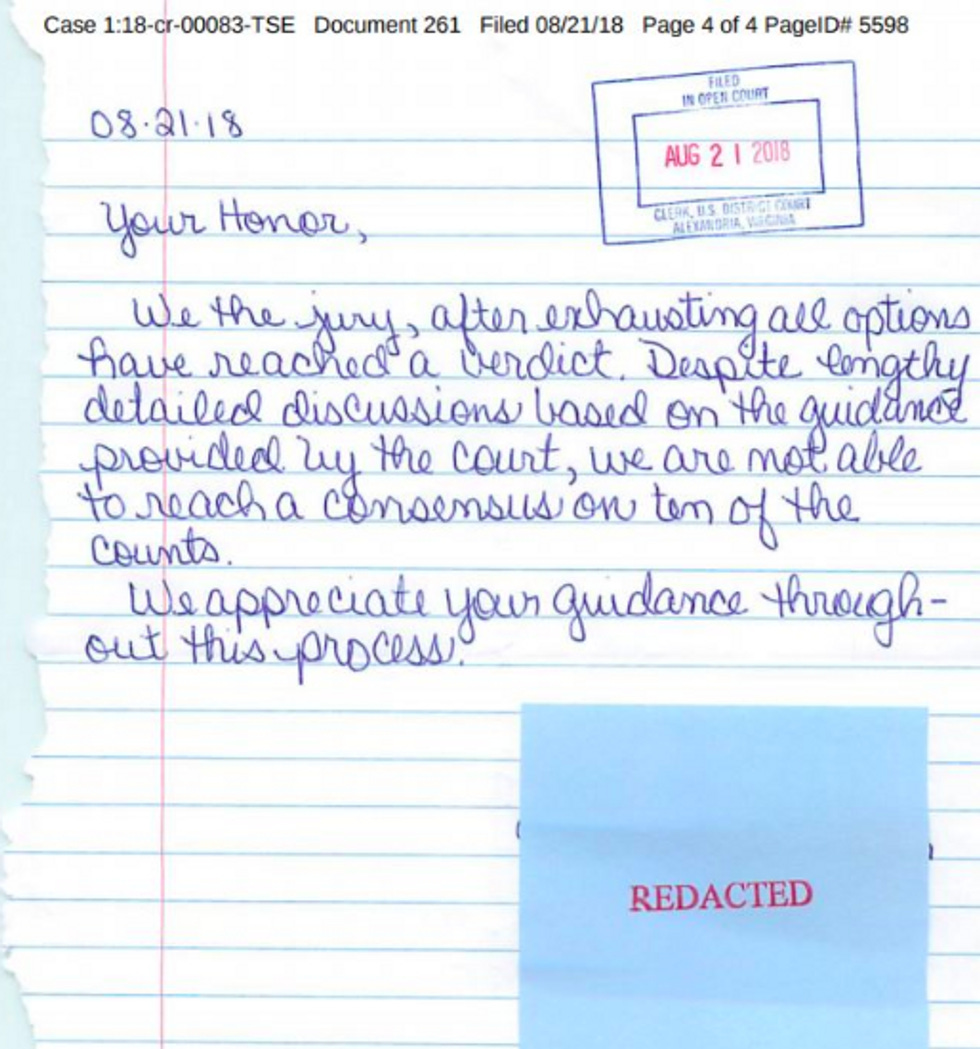 Case 1:18-cr-00083-TSE Document 261 Filed 08/21/18 Page 4 of 4 PageID# 5598
FILED
IN OPEN COURT
AUG 21 2018
CLERK, U.S. DISTRICT COURT
ALEXANDRIA, VIRGINIA
08.21.18
Your Honor,
We the jury, after exhausting all options
have reached a verdict. Despite lengthy
detailed discussions based on the guidance
provided by the court, we are not able
to reach a consensus on ten of the
counts.
We appreciate your guidance through-
out this process.
REDACTED